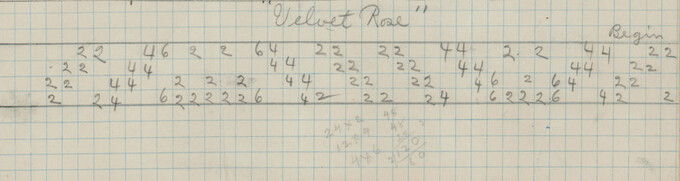 "Velvet Rose"
Begin
22 46 2 2 64 22 22 44 2 2 44 22
22 44 44 22 22 44 44 22
22 44 2 2 2 44 22 22 46 2 64 22
2 24 6222226 42 22 24 62226 42 2